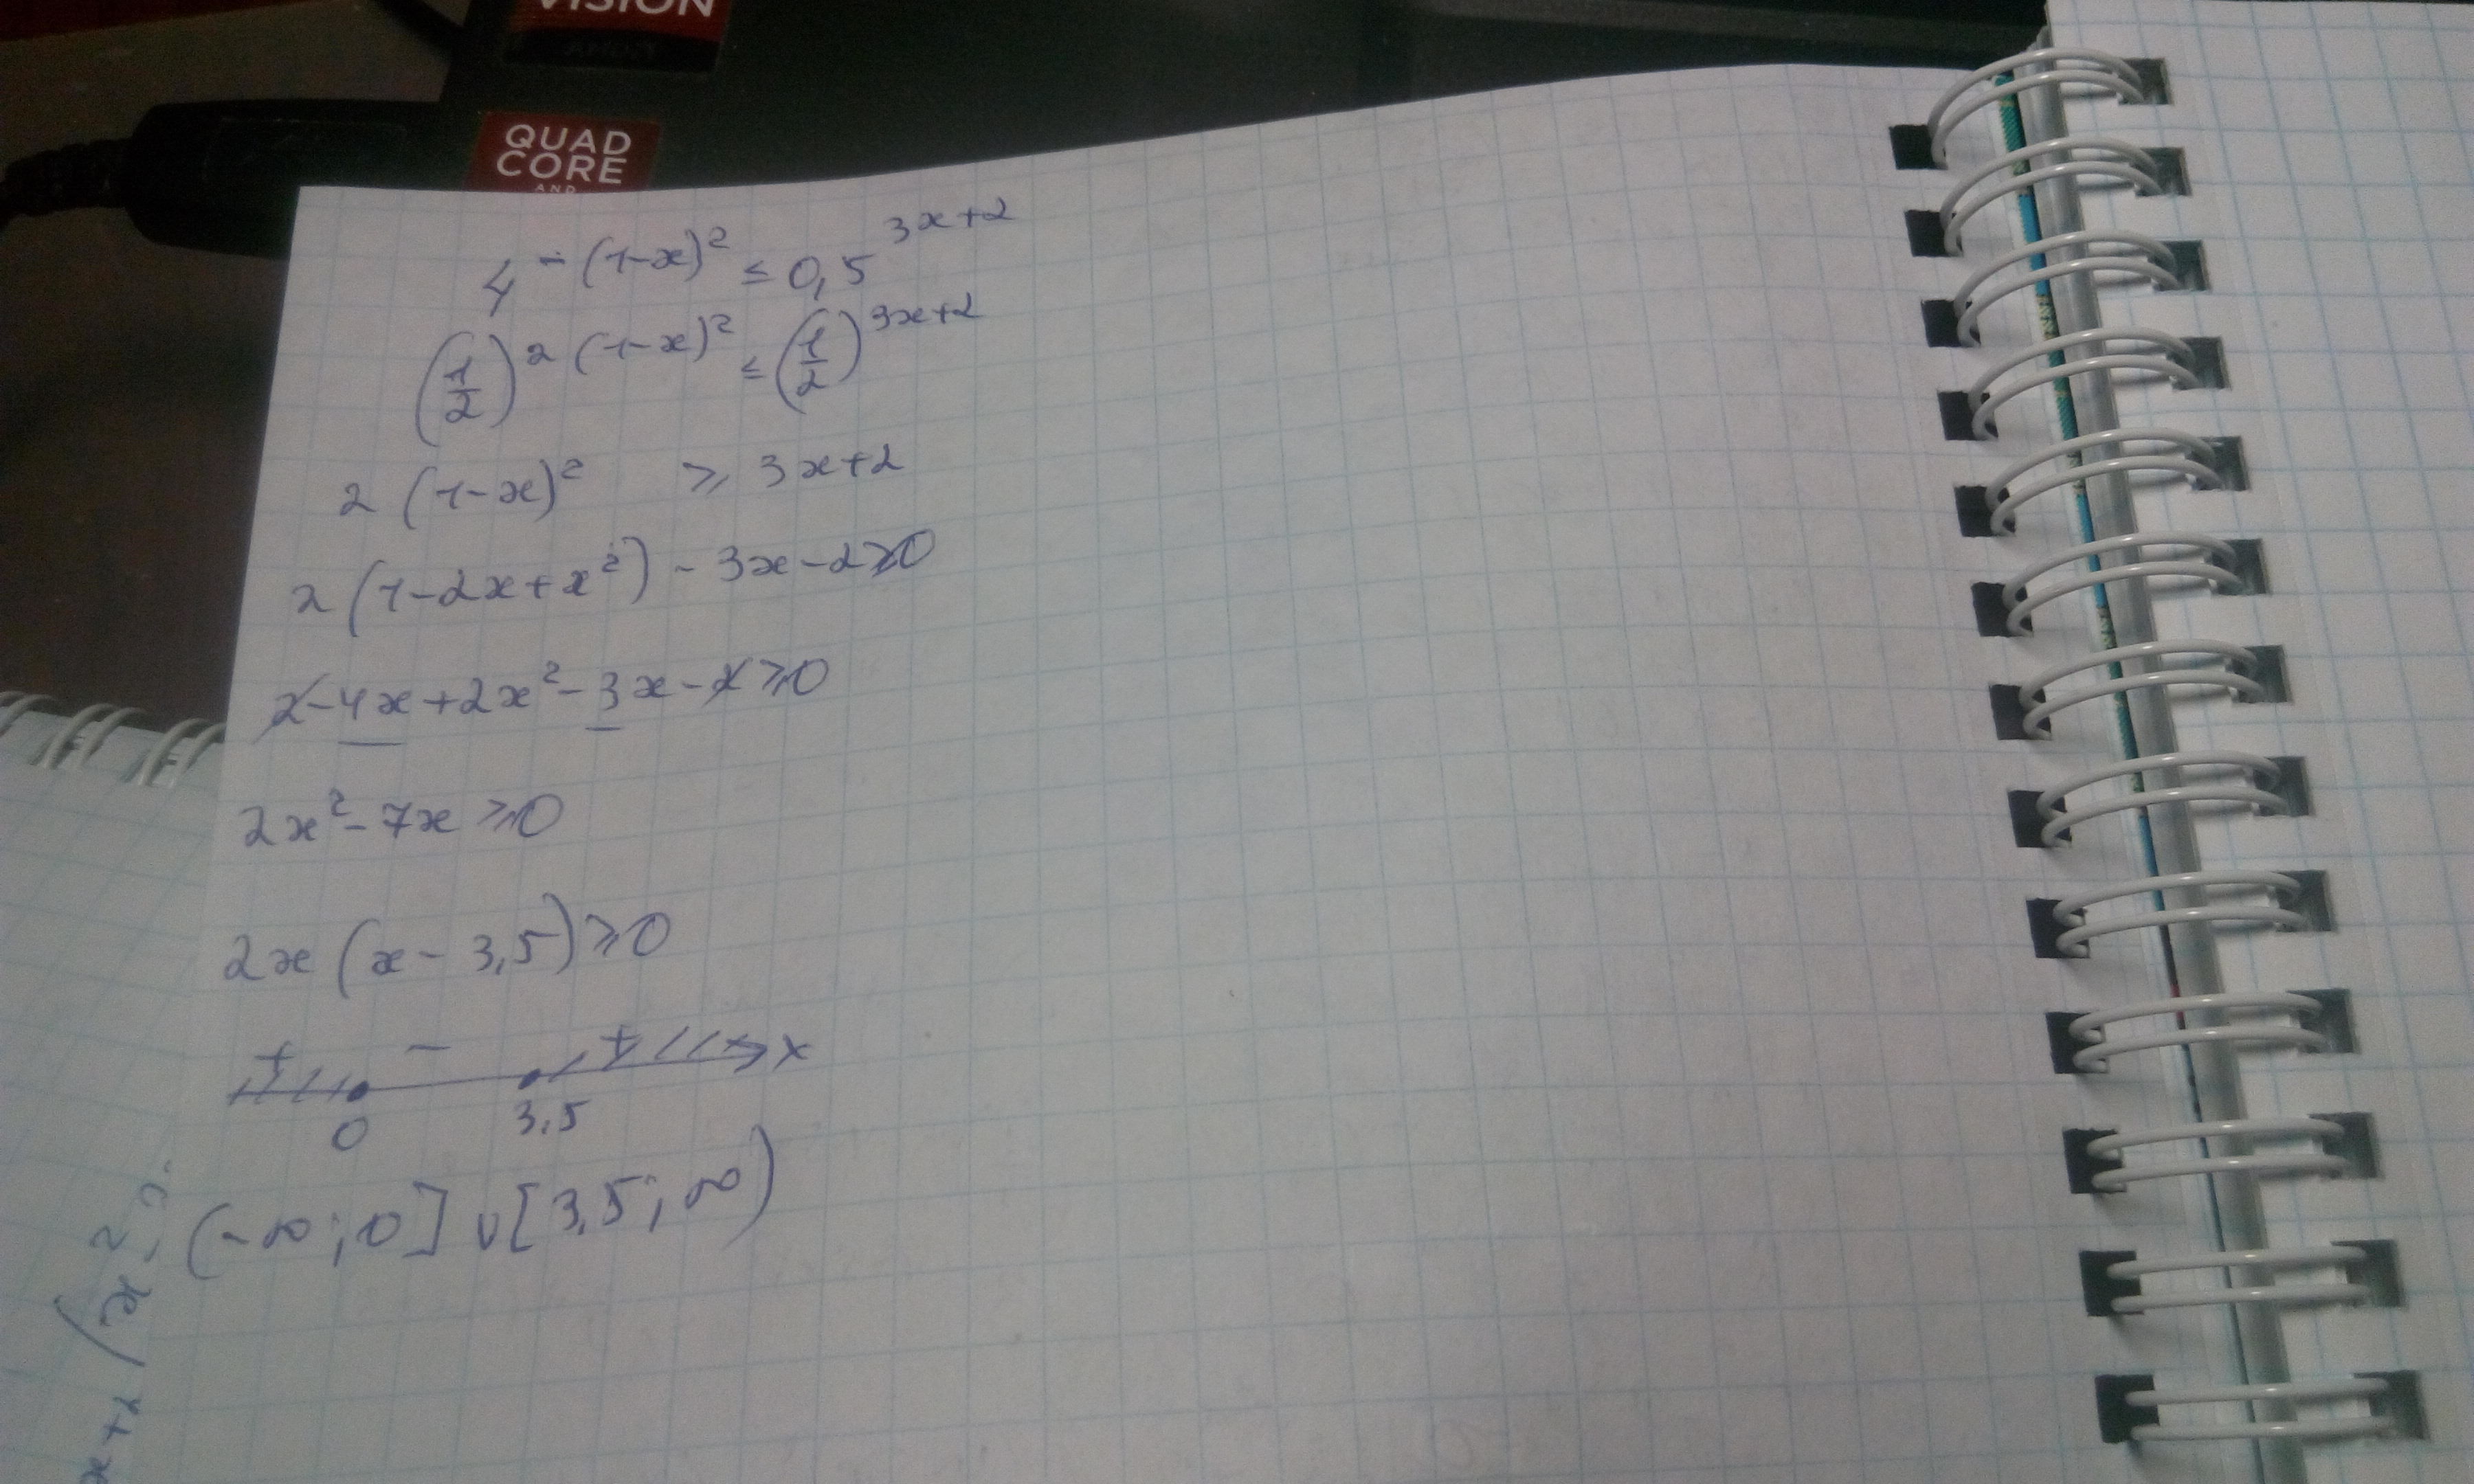 VISION
AMD
QUAD
CORE
AMD
4^{-(1-x)^2} ≤ 0,5^{3x+2}
(1/2)^{2(1-x)^2} ≤ (1/2)^{3x+2}
2(1-x)^2 ≥ 3x+2
2(1-2x+x^2) - 3x - 2 ≥ 0
2 - 4x + 2x^2 - 3x - 2 ≥ 0
2x^2 - 7x ≥ 0
2x(x - 3,5) ≥ 0
+ - + x
0 3,5
(-∞; 0] ∪ [3,5; ∞)